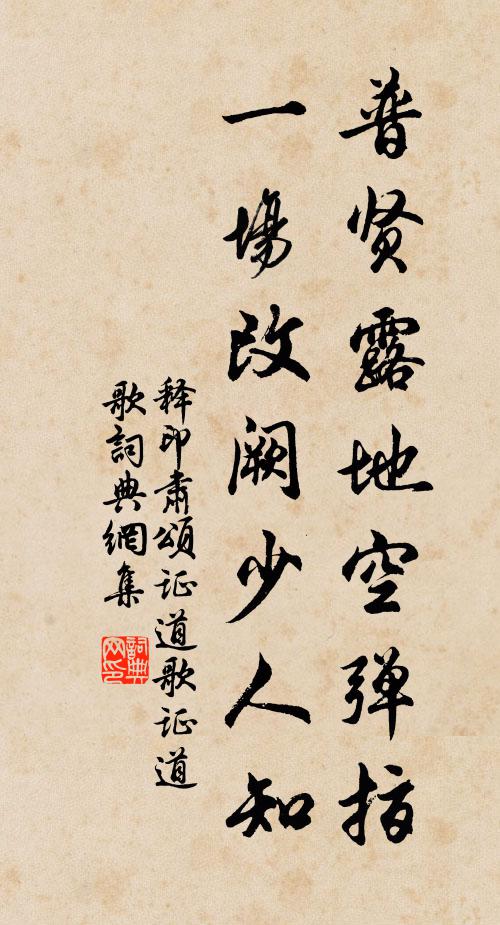 普贤露地空弹指
一場改阙少人知
释印肃頌证道歌证道
歌詞典網集
詞典网印